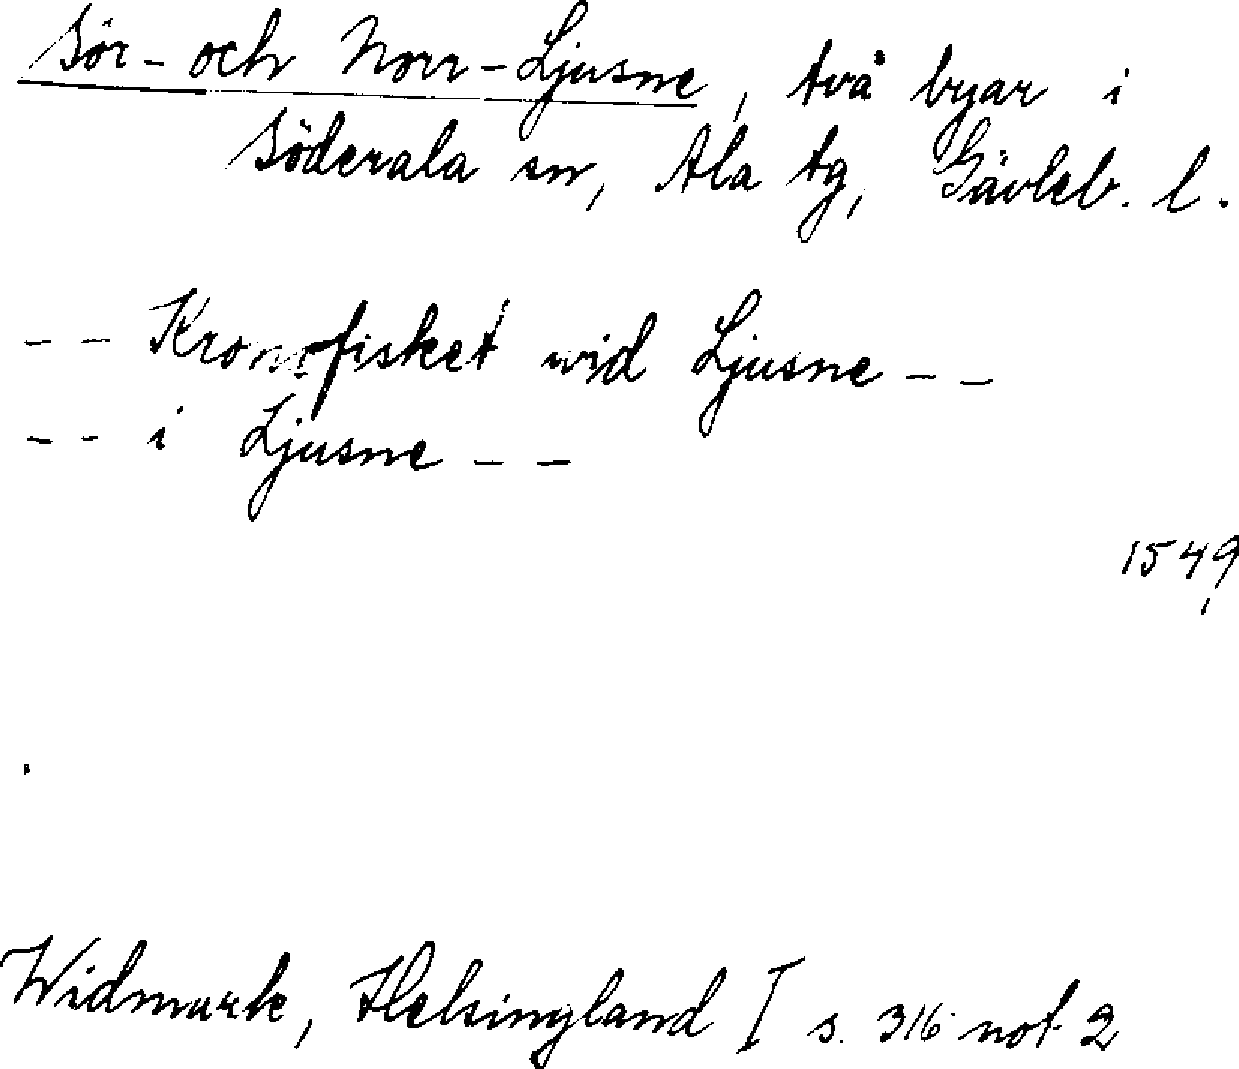 Sör- och Norr-Ljusne, två byar i
Söderala sn, Ala tg, Gävleb. l.
-- Kronofisket wid Ljusne --
-- i Ljusne --
1549
Widmark, Helsingland I s. 316 not 2